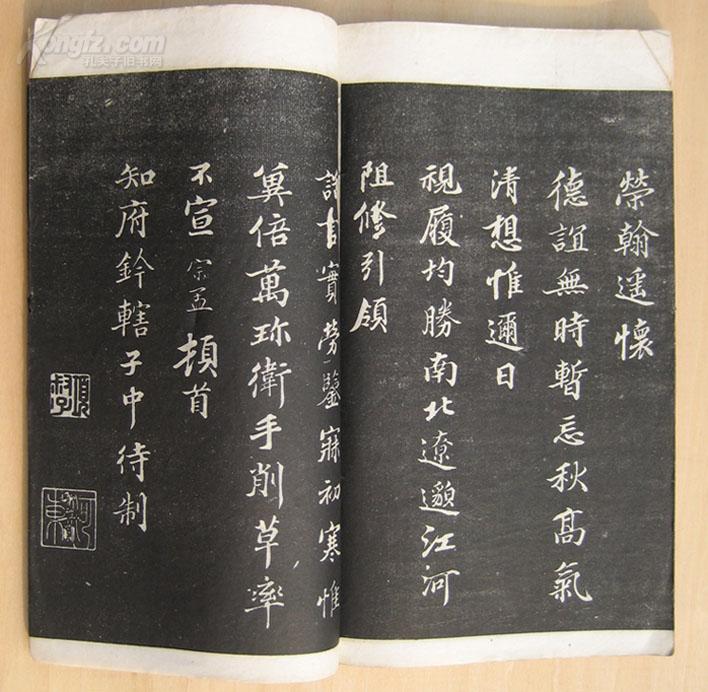 榮翰遥懷
德誼無時暫忘秋髙氣
清想惟邇日
視履均勝南北遼邈江河
阻脩引領
言實勞鑒寐初寒惟
兾倍萬珎衛手削草率
不宣宗孟頓首
知府鈐轄子中待制
Kongfz.com
孔夫子旧书网